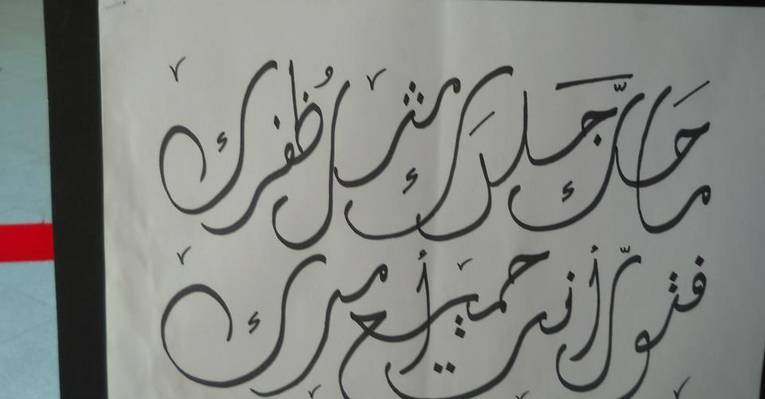 ما حكَّ جَلدَك مثل ظُفرك
فتولّ أنت جميع أمرك